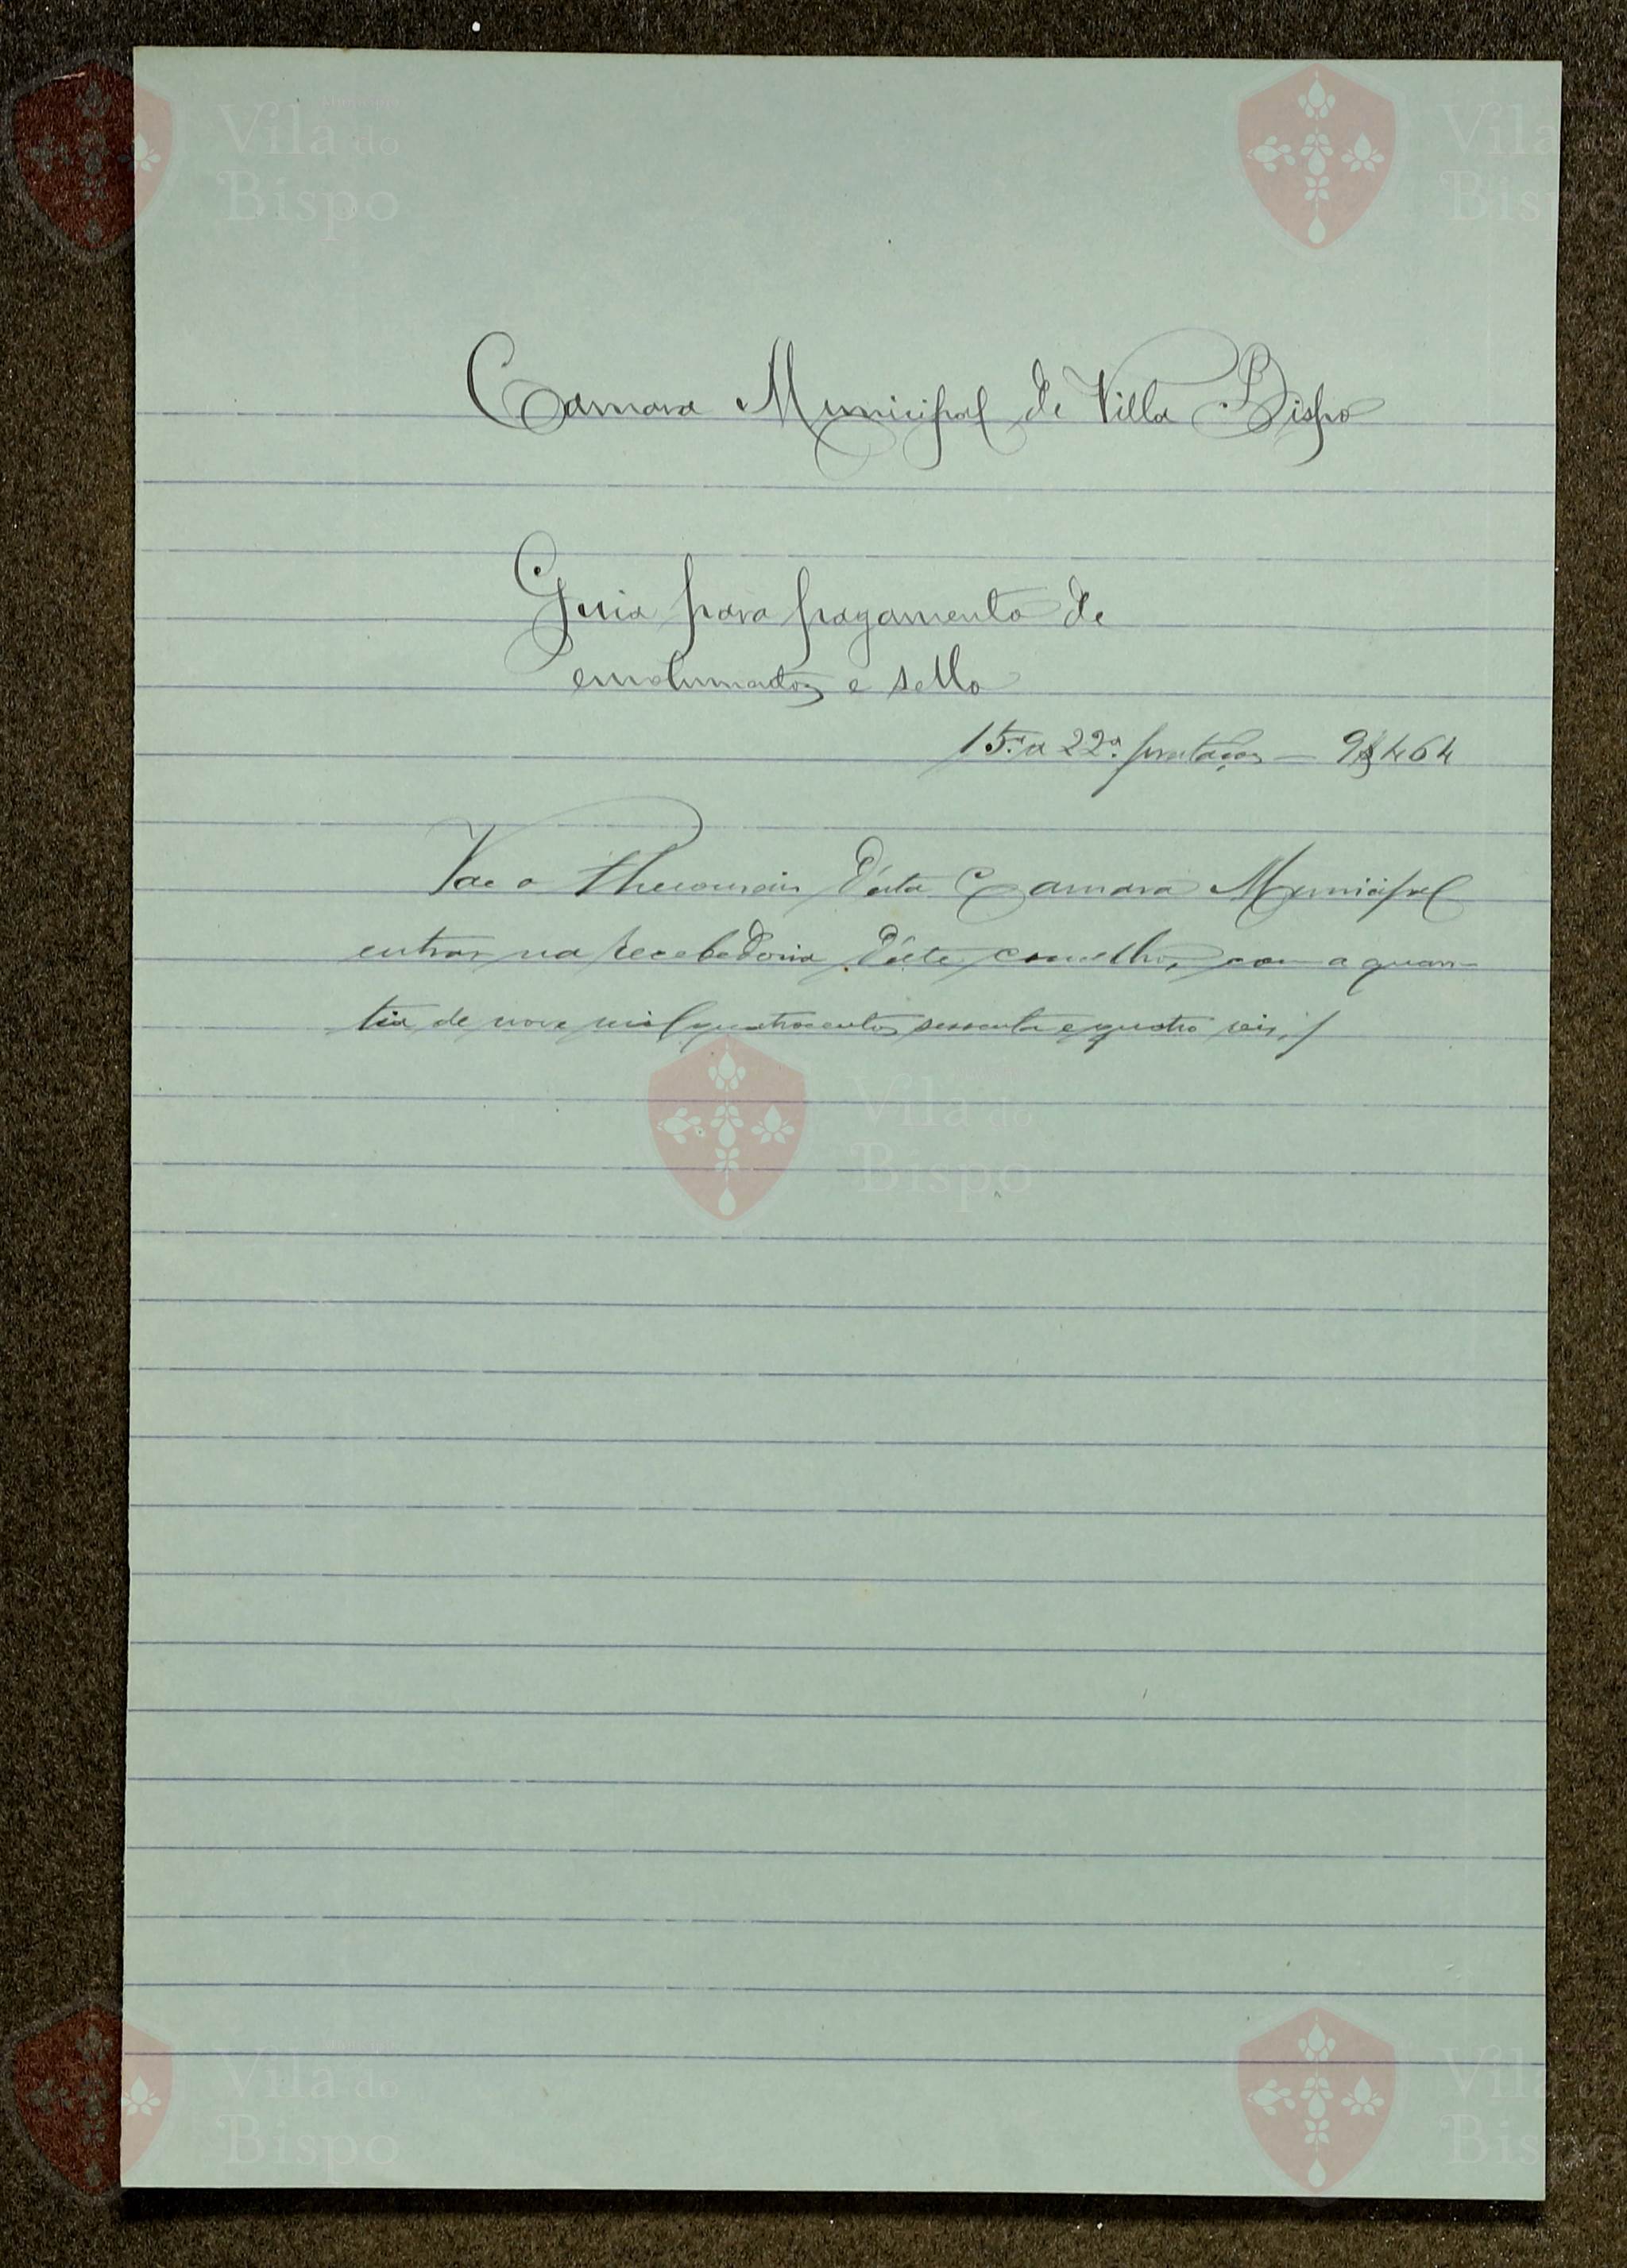 Camara Municipal de Villa Bispo
Guia para pagamento de
emolumentos e sello
15.ª a 22.ª prestações — 9$464
Vae o Thesoureiro d'esta Camara Municipal
entrar na recebedoria d'este concelho, com a quan-
tia de nove mil quatrocentos sessenta e quatro reis,/
Município
Vila do
Bispo
Vila
Bispo
Vila do
Bispo
Vila do
Bispo
Vila
Bisp